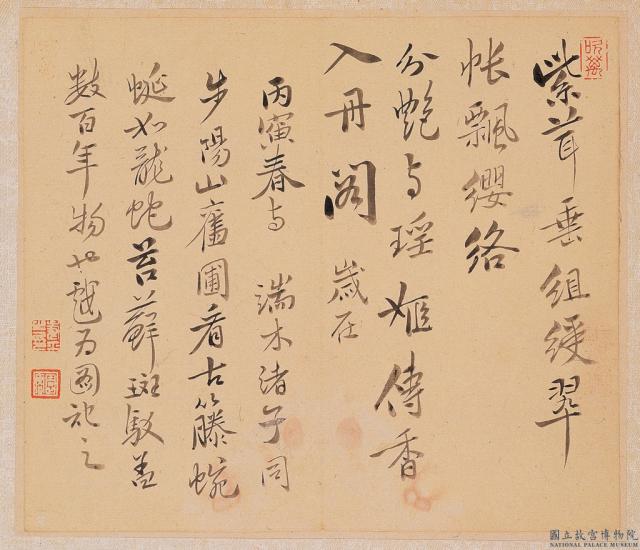 紫茸垂組綬翠
帳飄纓絡
分艷与瑶姬傳香
入丹閣 歲在
丙寅春与 端木渚子同
步陽山舊圃看古籐蜿
蜒如龍蛇苔蘚斑駁盖
數百年物也戲为圖記之
國立故宮博物院
NATIONAL PALACE MUSEUM